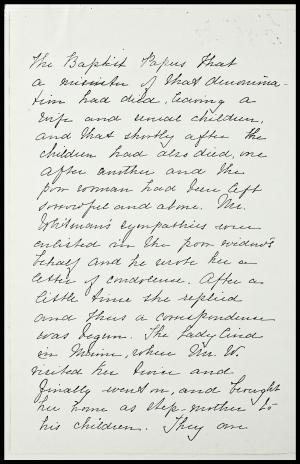 The Baptist Papers that
a minister of that denomina-
tion had died, leaving a
wife and several children,
and that shortly after the
children had also died, one
after another and the
poor woman had been left
sorrowful and alone. Mr.
Whitman's sympathies were
enlisted in the poor widow's
behalf and he wrote her a
letter of condolence. After a
little time she replied
and thus a correspondence
was begun. The lady lived
in Maine, where Mr. W.
visited her twice and
finally went on, and brought
her home as step-mother to
his children. They are